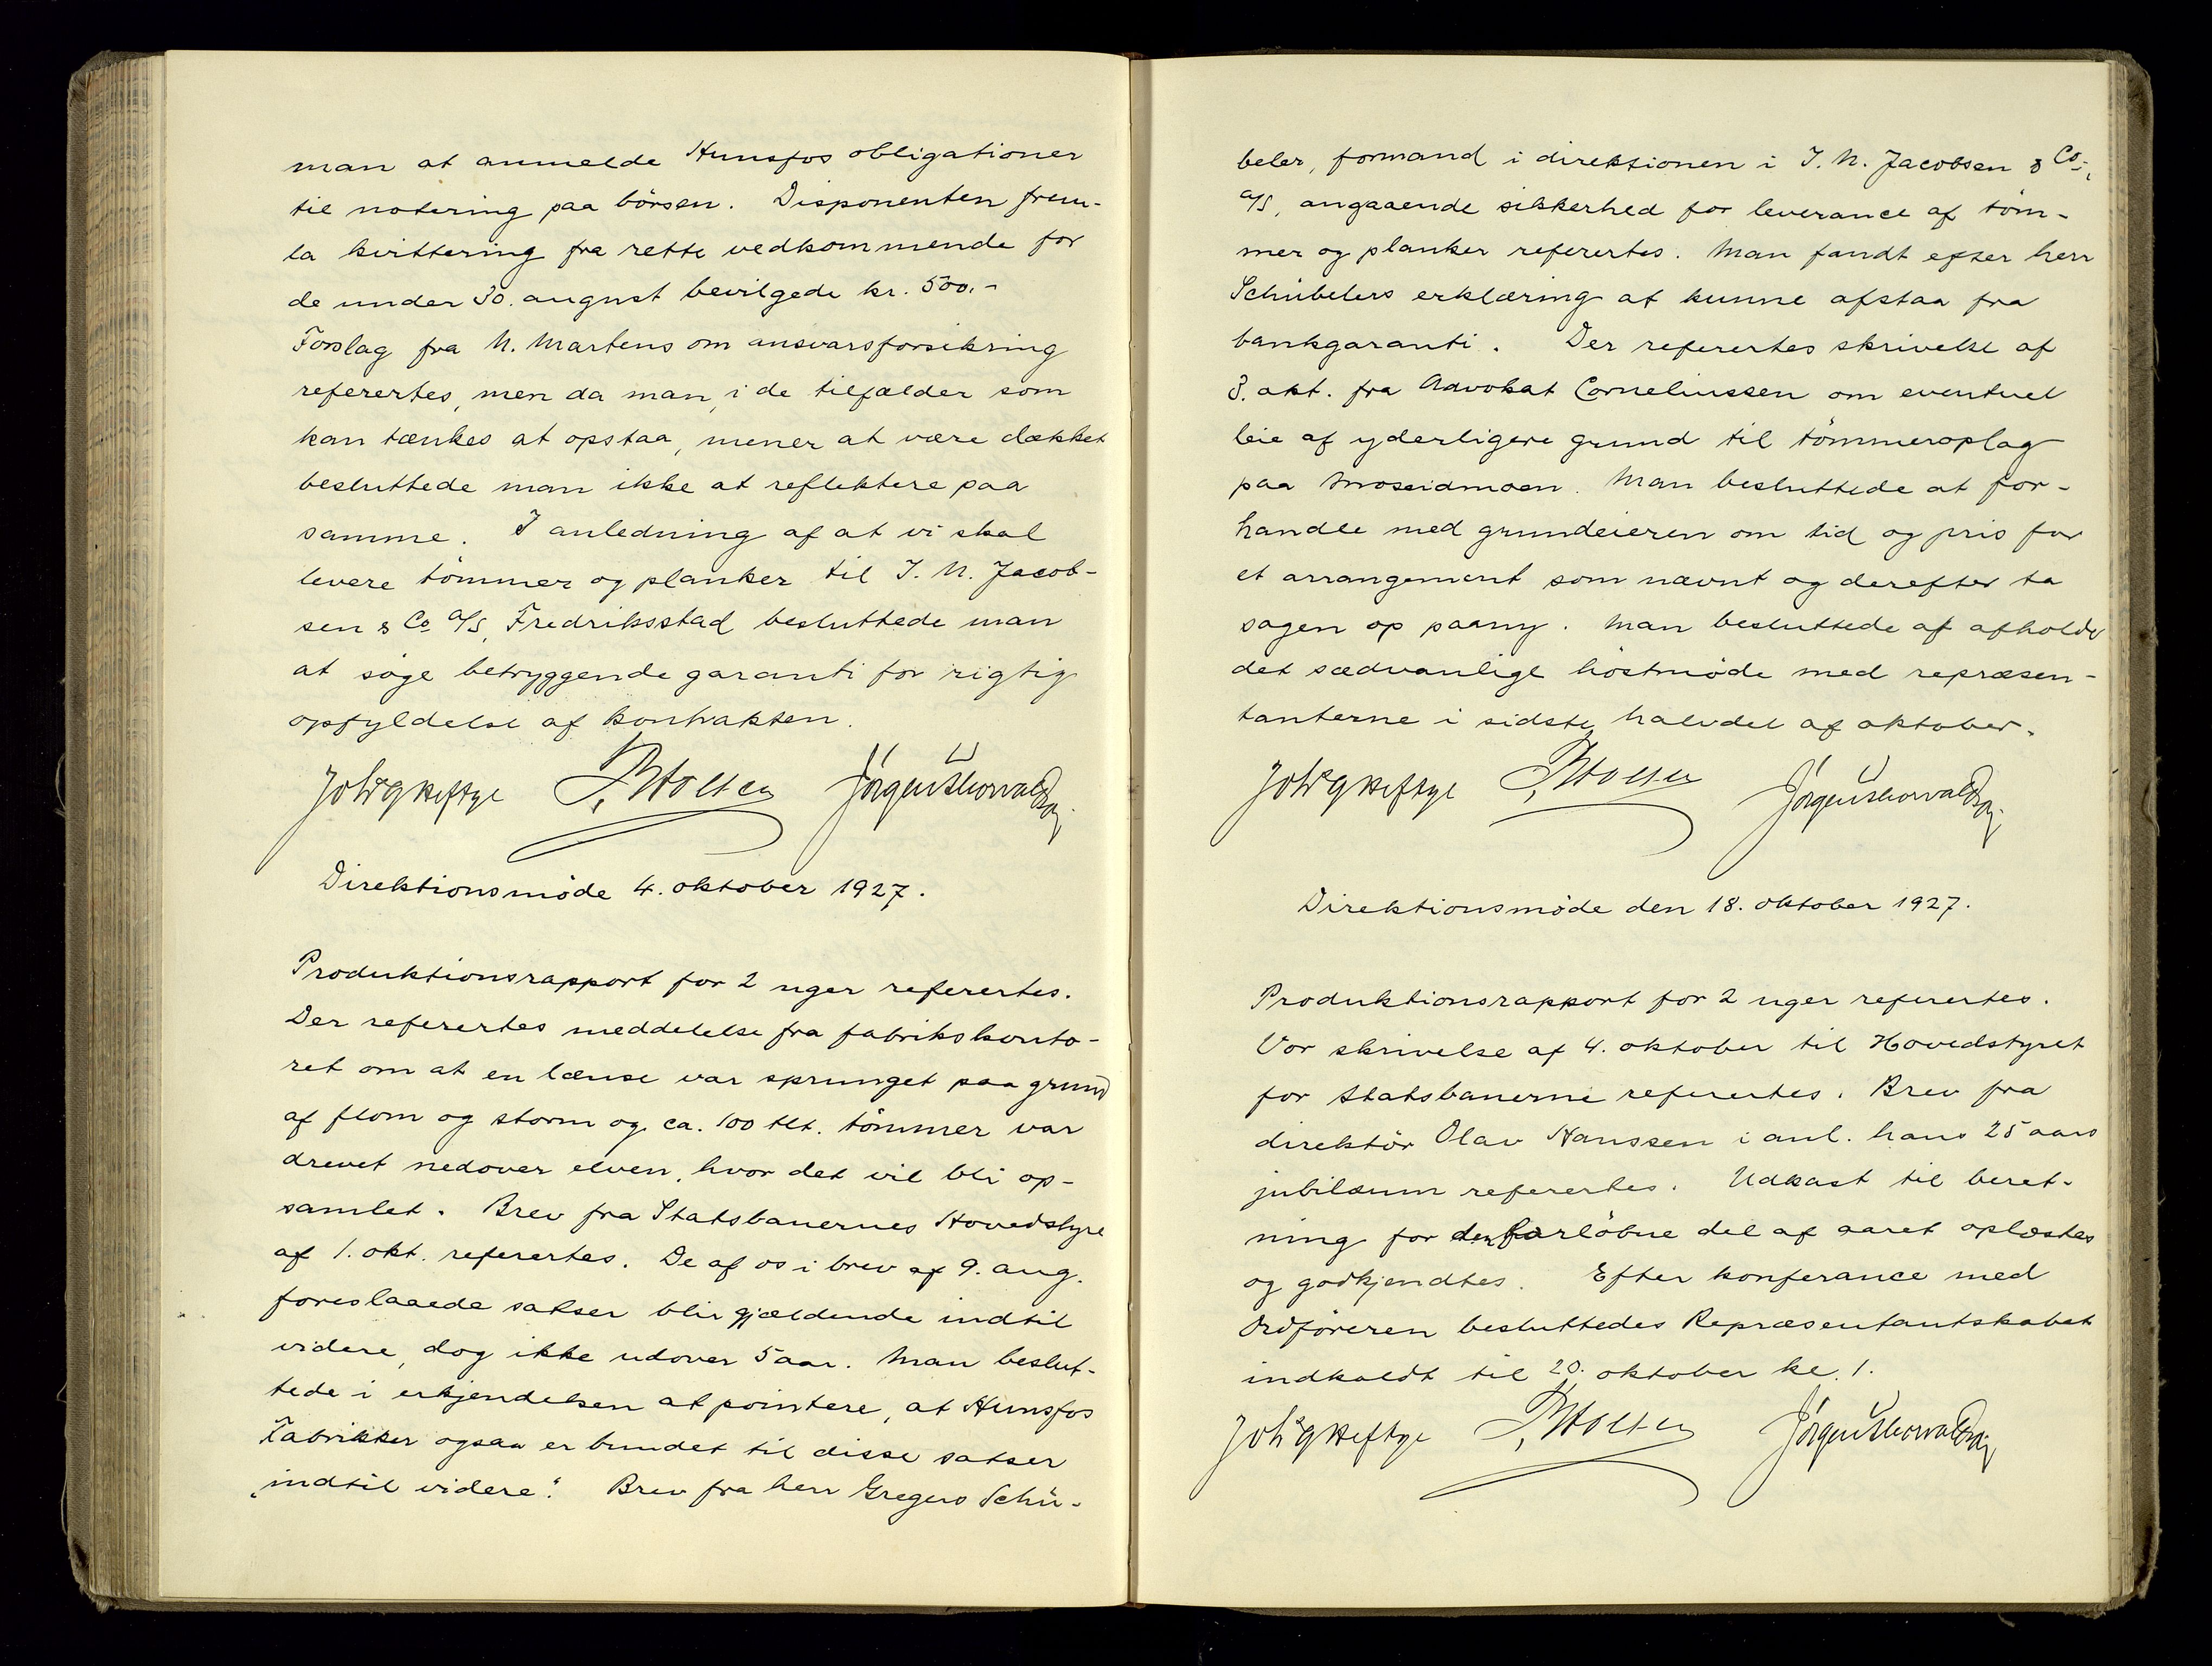 man at anmelde Hunsfos obligationer
til notering paa börsen. Disponenten frem-
la kvittering fra rette vedkommende for
de under 30. august bevilgede kr. 500,-
Forslag fra N. Martens om ansvarsforsikring
referertes, men da man, i de tilfælder som
kan tænkes at opstaa, mener at være dækket
besluttede man ikke at reflektere paa
samme. I anledning af at vi skal
levere tömmer og planker til J. N. Jacob-
sen & Co A/S, Fredriksstad besluttede man
at söge betryggende garanti for rigtig
opfyldelse af kontrakten.
Joh's G Heftye P. Holten Jörgen Thorvaldson
Direktionsmöde 4. oktober 1927.
Produktionsrapport for 2 uger referertes.
Der referertes meddelelse fra fabrikskonto-
ret om at en lænse var sprunget paa grund
af flom og storm og ca. 100 tlt. tömmer var
drevet nedover elven, hvor det vil bli op-
samlet. Brev fra Statsbanernes Hovedstyre
af 1. okt. referertes. De af os i brev af 9. aug.
foreslaaede satser blir gjældende indtil
videre, dog ikke udover 5 aar. Man beslut-
tede i erkjendelsen at pointere, at Hunsfos
Fabrikker ogsaa er bundet til disse satser
„indtil videre". Brev fra herr Gregers Schü-
beler, formand i direktionen i J. N. Jacobsen & Co.,
A/S, angaaende sikkerhed for leverance af töm-
mer og planker referertes. Man fandt efter herr
Schübelers erklæring at kunne afstaa fra
bankgaranti. Der referertes skrivelse af
3. okt. fra Advokat Corneliussen om eventuel
leie af yderligere grund til tömmeroplag
paa Moseidmoen. Man besluttede at for-
handle med grundeieren om tid og pris for
et arrangement som nævnt og derefter ta
sagen op paany. Man besluttede af afholde
det sædvanlige höstmöde med repræsen-
tanterne i sidste halvdel af oktober.
Joh's G Heftye P. Holten Jörgen Thorvaldson
Direktionsmöde den 18. oktober 1927.
Produktionsrapport for 2 uger referertes.
Vor skrivelse af 4. oktober til Hovedstyret
for Statsbanerne referertes. Brev fra
direktör Olav Hanssen i anl. hans 25 aars
jubilæum referertes. Udkast til beret-
ning for den forlöbne del af aaret oplæstes
og godkjendtes. Efter konferance med
Ordföreren besluttedes Repræsentantskabet
indkaldt til 20. oktober kl. 1.
Joh's G Heftye P. Holten Jörgen Thorvaldson